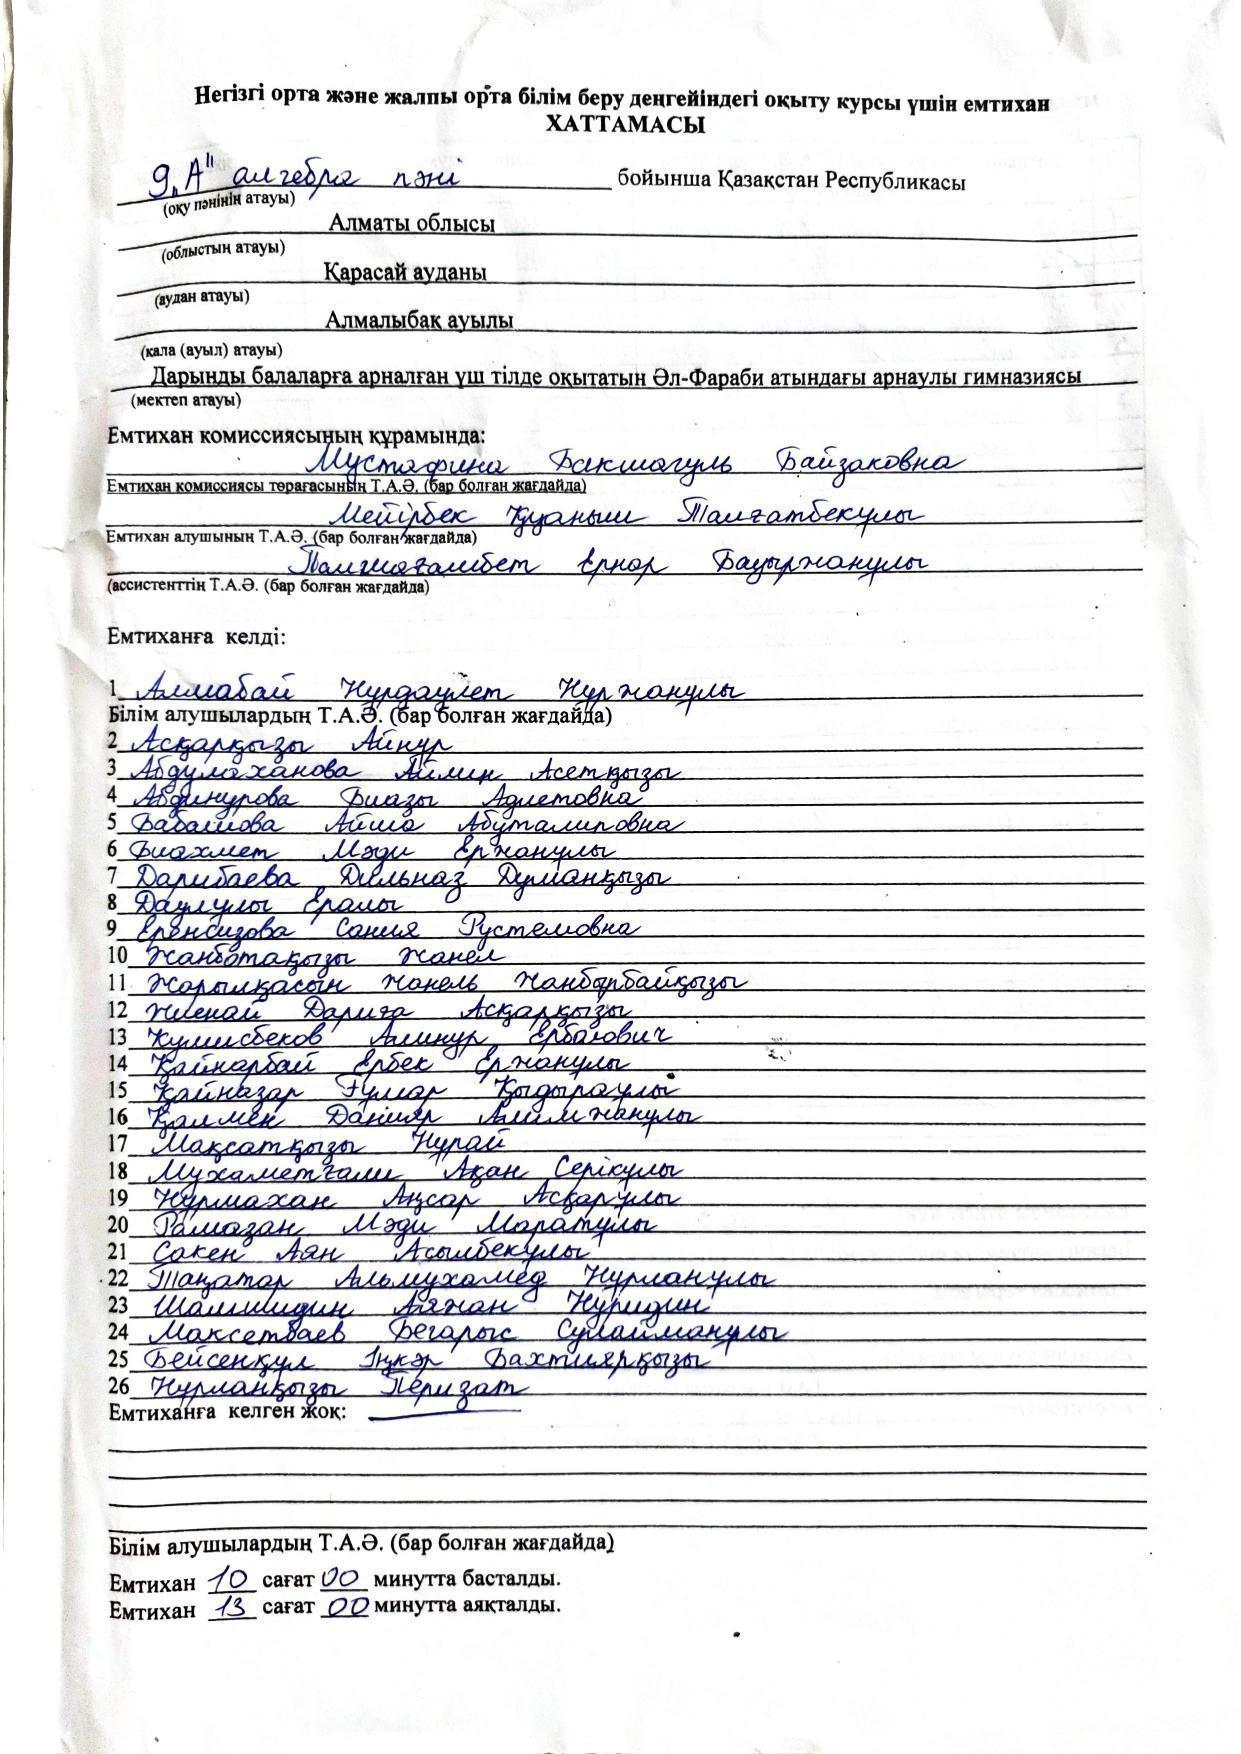 Негізгі орта және жалпы орта білім беру деңгейіндегі оқыту курсы үшін емтихан
ХАТТАМАСЫ
9 „А" алгебра пәні бойынша Қазақстан Республикасы
(оқу пәнінің атауы)
Алматы облысы
(облыстың атауы)
Қарасай ауданы
(аудан атауы)
Алмалыбақ ауылы
(қала (ауыл) атауы)
Дарынды балаларға арналған үш тілде оқытатын Әл-Фараби атындағы арнаулы гимназиясы
(мектеп атауы)
Емтихан комиссиясының құрамында:
Мустафина Бакшагуль Байзаковна
Емтихан комиссиясы төрағасының Т.А.Ә. (бар болған жағдайда)
Мейірбек Қуаныш Талғатбекұлы
Емтихан алушының Т.А.Ә. (бар болған жағдайда)
Палжағамбет Ернар Бауыржанұлы
(ассистенттің Т.А.Ә. (бар болған жағдайда)
Емтиханға келді:
1 Алмабай Нұрдәулет Нұржанұлы
Білім алушылардың Т.А.Ә. (бар болған жағдайда)
2 Асқарқызы Айнұр
3 Абдулаханова Айлин Асетқызы
4 Абдинурова Биазы Адлетовна
5 Бабашова Айша Абуталиповна
6 Биахмет Мәди Ержанұлы
7 Дарибаева Дильназ Думанқызы
8 Даулұлы Ералы
9 Еренсизова Сания Рустемовна
10 Жанботақызы Жанел
11 Жарылқасын Жанель Жанбырбайқызы
12 Жиенай Дариға Асқарқызы
13 Кумисбеков Алинур Ербатович
14 Қайнарбай Ербек Ержанұлы
15 Қайназар Ғұмар Қыдыраұлы
16 Қалмен Данияр Алимжанұлы
17 Мақсатқызы Нұрай
18 Мухаметғали Ақан Серікұлы
19 Нұрмахан Аңсар Асқарұлы
20 Рамазан Мәди Маратұлы
21 Сакен Аян Асылбекұлы
22 Таңатар Альмухамед Нұрланұлы
23 Шамшидин Аяжан Нұридин
24 Максетбаев Бегарыс Сулайманұлы
25 Бейсенқұл Іңкәр Бахтиярқызы
26 Нұрланқызы Перизат
Емтиханға келген жоқ:
Білім алушылардың Т.А.Ә. (бар болған жағдайда)
Емтихан 10 сағат 00 минутта басталды.
Емтихан 13 сағат 00 минутта аяқталды.